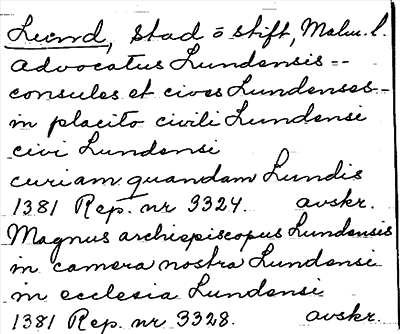 Lund, stad o stift, Malm. l.
advocatus Lundensis --
consules et cives Lundenses --
in placito civili Lundensi
civi Lundensi
curiam quandam Lundis
1381 Rep. nr 3324. avskr.
Magnus archiepiscopus Lundensis
in camera nostra Lundensi
in ecclesia Lundensi
1381 Rep. nr 3328. avskr.